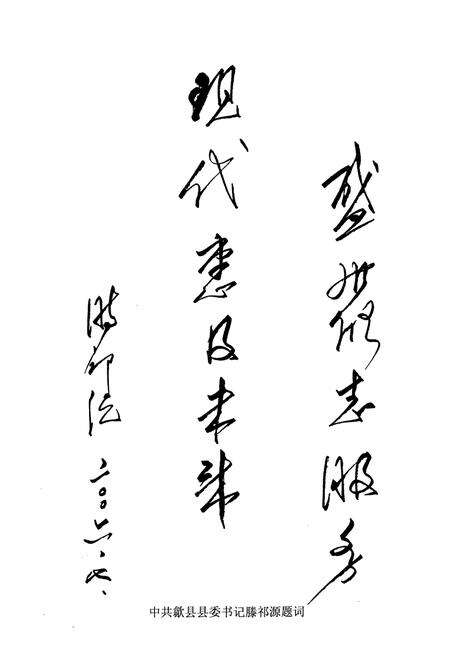 盛世修志服务
现代惠及未来
滕祁源 二〇〇六.七.
中共歙县县委书记滕祁源题词